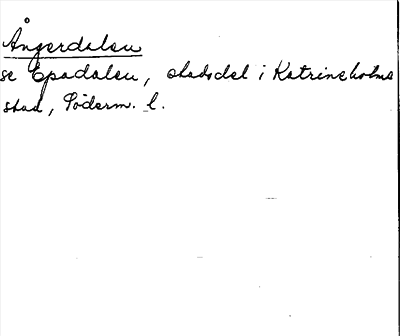 Ångerdalen
se Epadalen, stadsdel i Katrineholms
stad, Söderm. l.